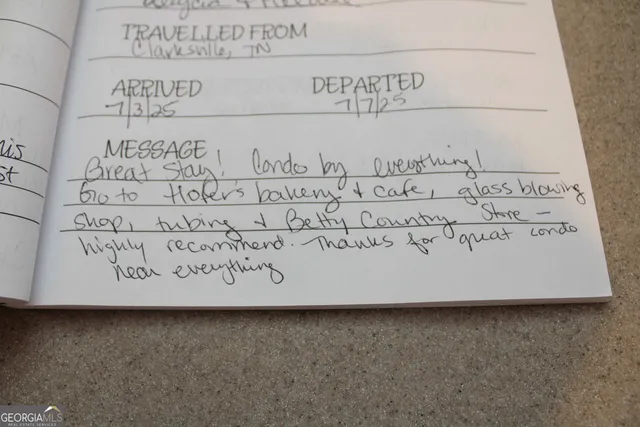 TRAVELLED FROM
Clarksville, TN
ARRIVED DEPARTED
7/3/25 7/7/25
MESSAGE
Great Stay! Condo by everything!
Go to Hofer's bakery & cafe, glass blowing
shop, tubing & Betty Country Store -
highly recommend. Thanks for great condo
near everything
GEORGIAMLS
REAL ESTATE SERVICES